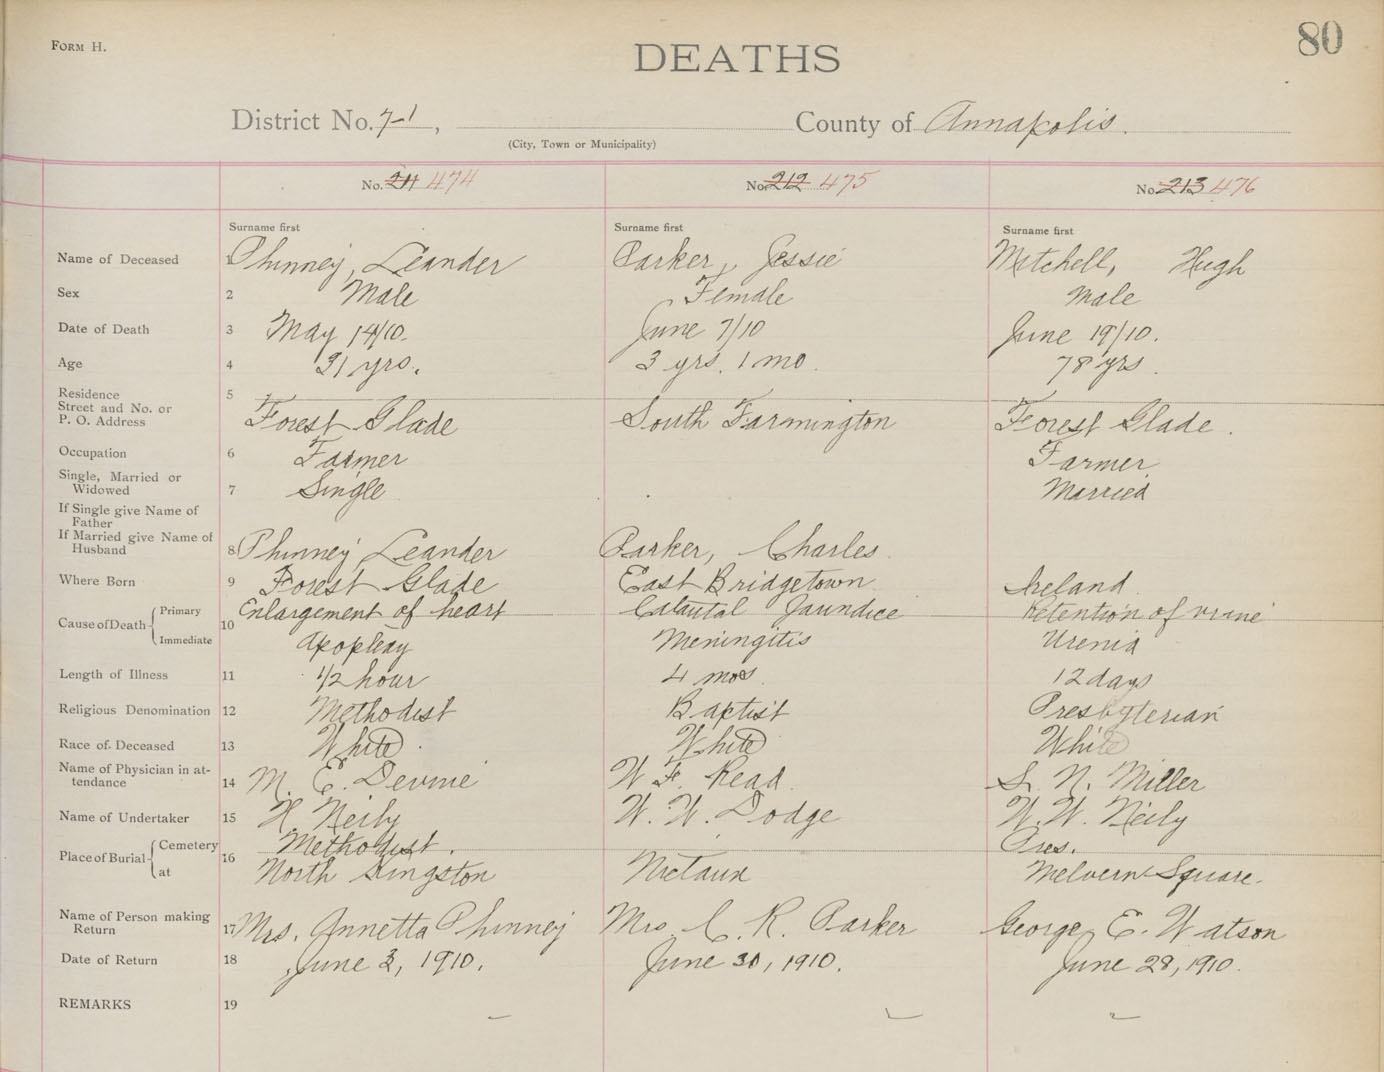 FORM H.
80
DEATHS
District No. 7-1, County of Annapolis.
(City, Town or Municipality)
No. 211 474 No. 212 475 No. 213 476
Surname first Surname first Surname first
Name of Deceased 1 Phinney, Leander Parker, Jessie Mitchell, Hugh
Sex 2 Male Female Male
Date of Death 3 May 14/10. June 7/10 June 19/10.
Age 4 31 yrs. 3 yrs. 1 mo. 78 yrs.
Residence 5
Street and No. or
P. O. Address Forest Glade South Farmington Forest Glade.
Occupation 6 Farmer Farmer
Single, Married or
Widowed 7 Single Married
If Single give Name of
Father
If Married give Name of
Husband 8 Phinney, Leander Parker, Charles.
Where Born 9 Forest Glade East Bridgetown Ireland
Cause of Death Primary Enlargement of heart Catautal Jaundice Retention of urine
10
Immediate Apoplexy Meningitis Urenia
Length of Illness 11 1/2 hour 4 mos. 12 days
Religious Denomination 12 Methodist Baptist Presbyterian
Race of Deceased 13 White White White
Name of Physician in at-
tendance 14 M. E. Devine W. F. Read S. N. Miller
Name of Undertaker 15 H Neily W. W. Dodge W. W. Neily
Place of Burial Cemetery Methodist. Pres.
16
at North Kingston Nictaux Melvern Square.
Name of Person making
Return 17 Mrs. Annetta Phinney Mrs. C. R. Parker George E. Watson
Date of Return 18 June 3, 1910. June 30, 1910. June 28, 1910.
REMARKS 19